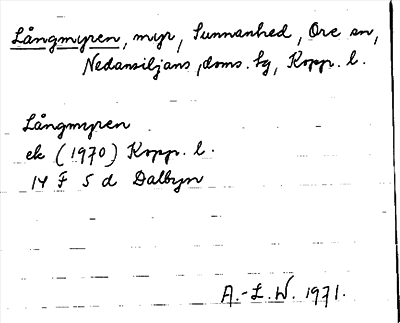 Långmyren, myr, Sunnanhed, Ore sn,
Nedansiljans, doms. sg, Kopp. l.
Långmyren
ek (1970) Kopp. l.
14 F 5 d Dalbyn
A.-L. W. 1971.